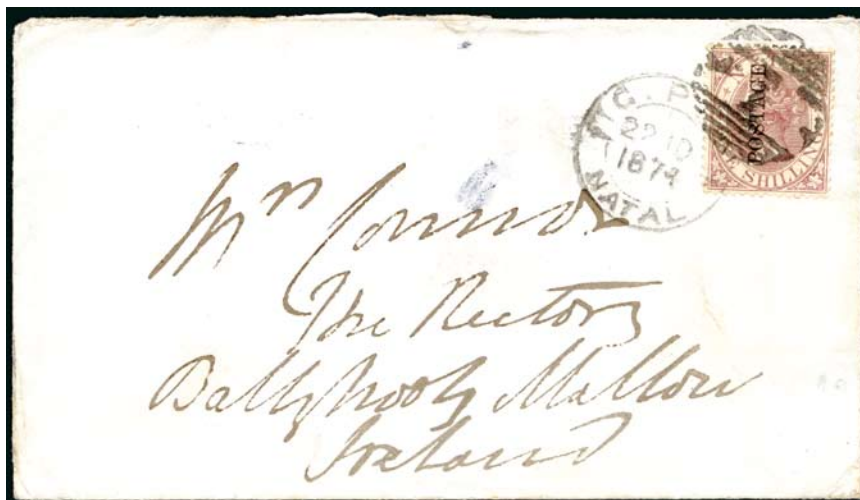 G.P
22 10
1874
NATAL
POSTAGE
SHILLING
Mrs Connor
The Rectory
Ballyhooly Mallow
Ireland